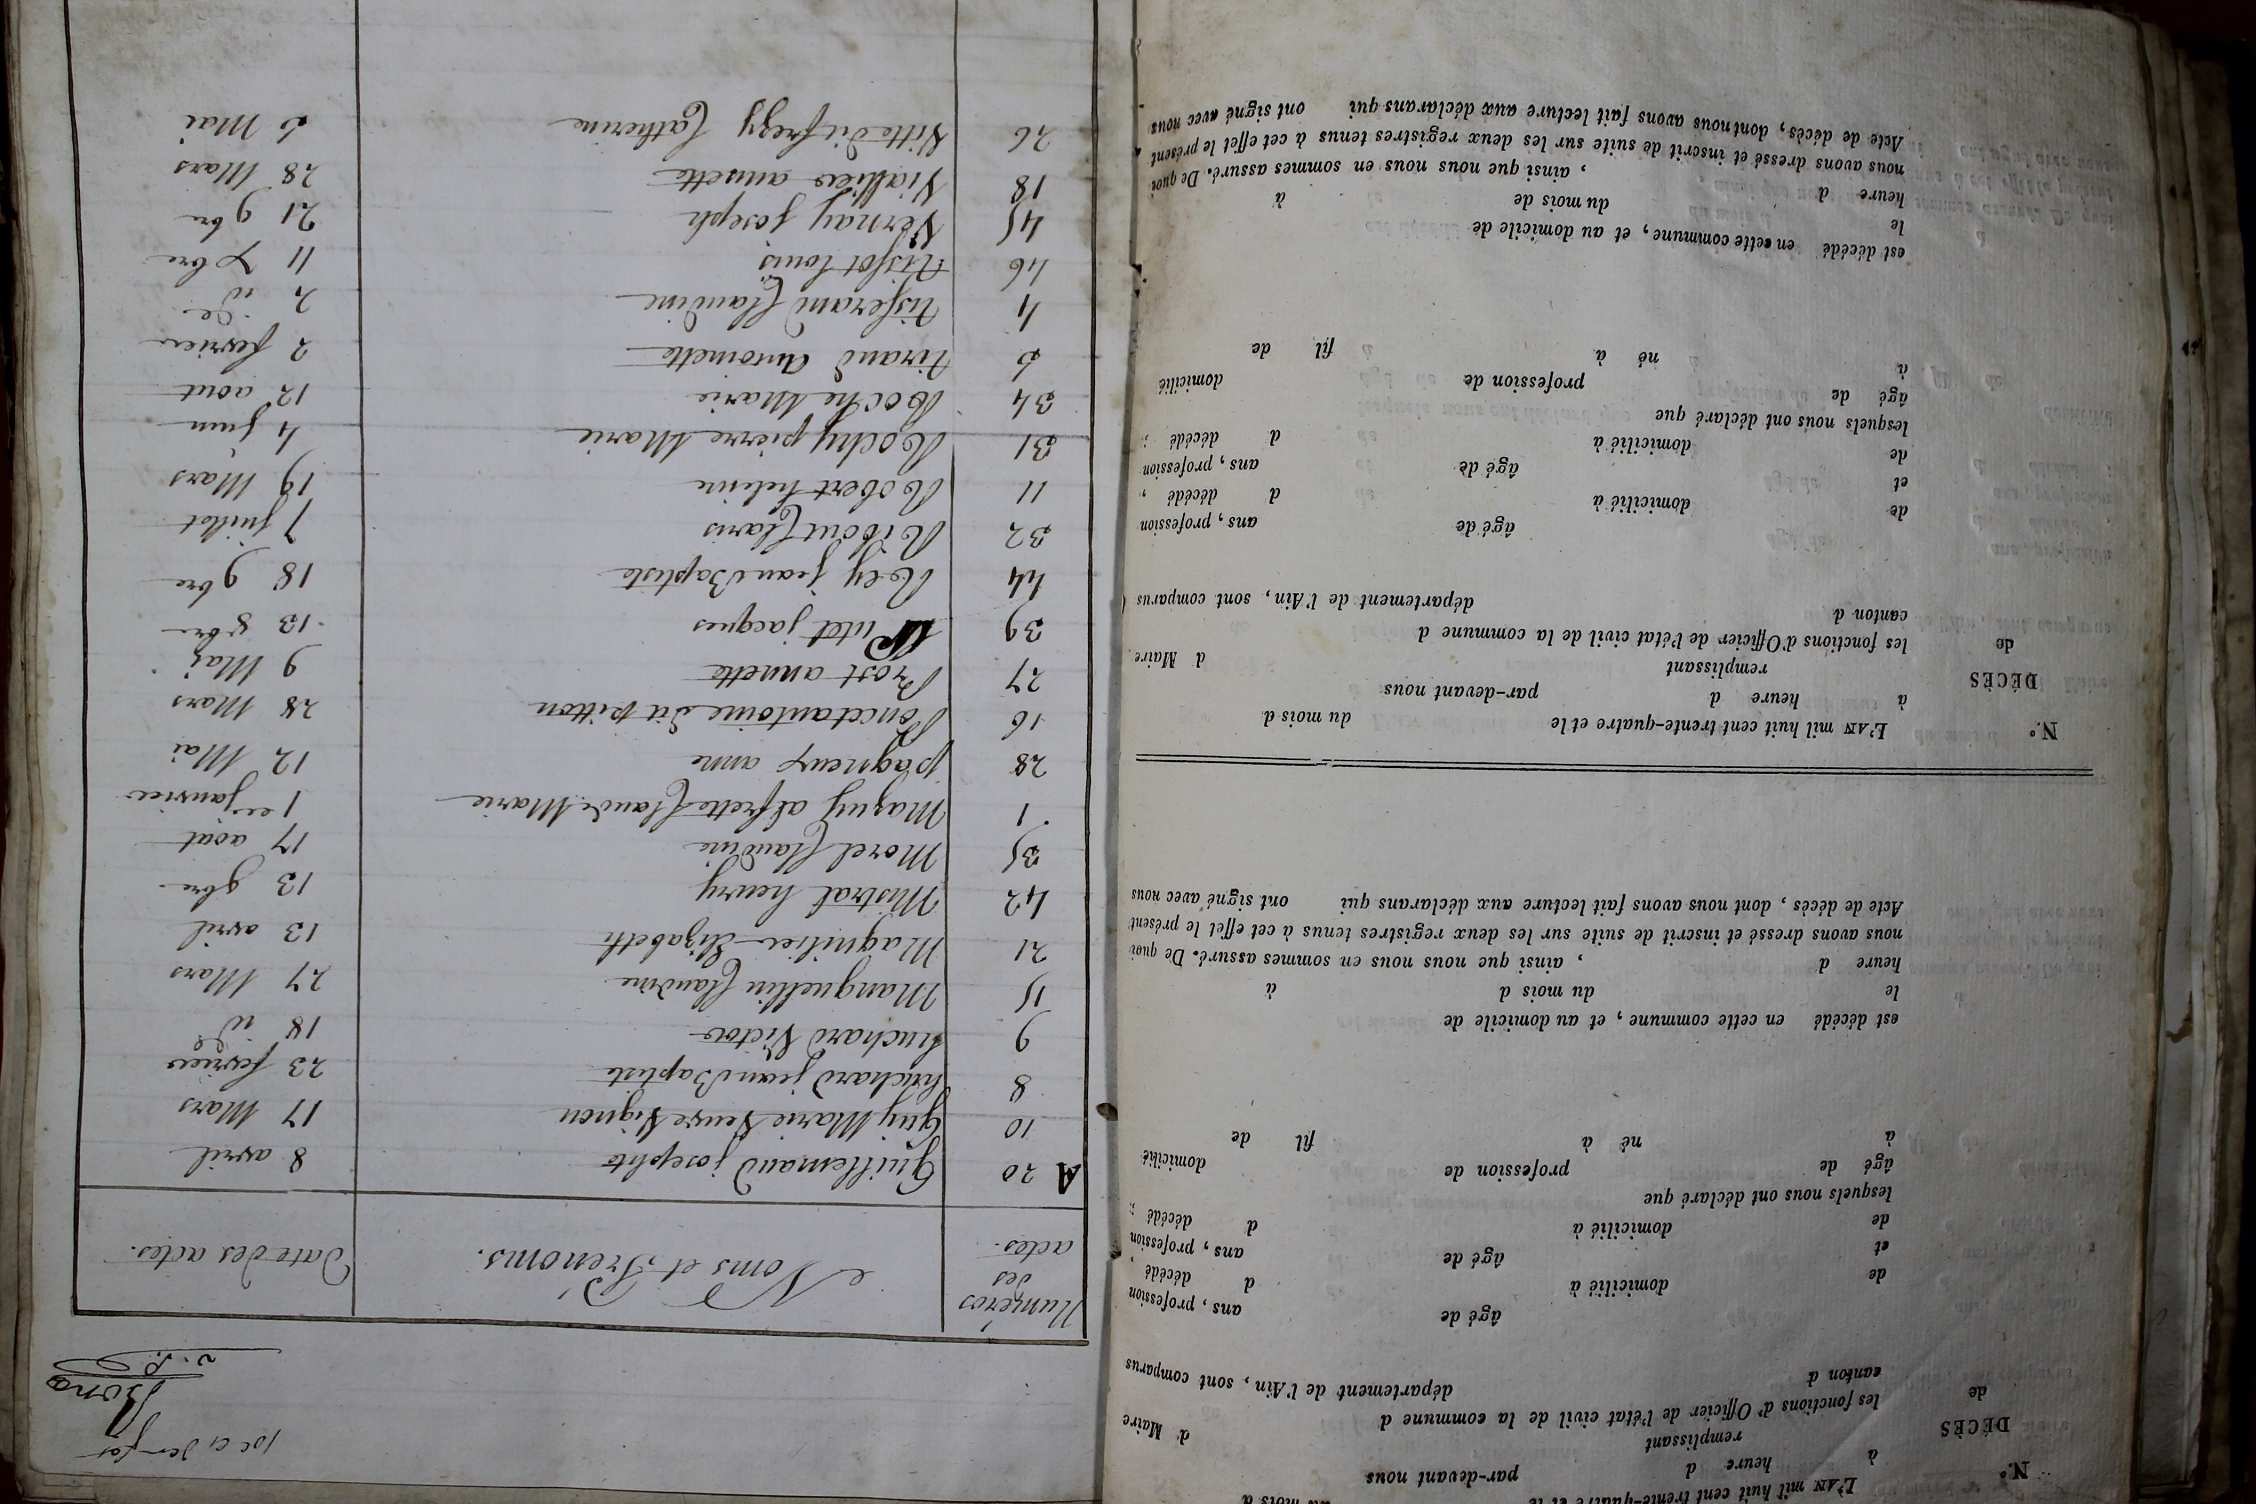 N.° L'AN mil huit cent trente-quatre et le du mois d
à heure d par-devant nous
DÉCÈS remplissant d Maire
de les fonctions d'Officier de l'état civil de la commune d
canton d département de l'Ain, sont comparus
âgé de ans, profession
de domicilié à d décédé,
et âgé de ans, profession
de domicilié à d décédé ;
lesquels nous ont déclaré que
âgé de profession de domicilié
à né à fil de
est décédé en cette commune, et au domicile de
le du mois d à
heure d , ainsi que nous nous en sommes assuré. De quoi
nous avons dressé et inscrit de suite sur les deux registres tenus à cet effet le présent
Acte de décès, dont nous avons fait lecture aux déclarans qui ont signé avec nous
N.° L'AN mil huit cent trente-quatre et le du mois d
à heure d par-devant nous
DÉCÈS remplissant d Maire
de les fonctions d'Officier de l'état civil de la commune d
canton d département de l'Ain, sont comparus
âgé de ans, profession
de domicilié à d décédé,
et âgé de ans, profession
de domicilié à d décédé ;
lesquels nous ont déclaré que
âgé de profession de domicilié
à né à fil de
est décédé en cette commune, et au domicile de
le du mois de à
heure d , ainsi que nous nous en sommes assuré. De quoi
nous avons dressé et inscrit de suite sur les deux registres tenus à cet effet le présent
Acte de décès, dont nous avons fait lecture aux déclarans qui ont signé avec nous
Numéros des actes. Noms et Prénoms. Date des actes.
A 20 Guillemaud josephte 8 avril
10 Guy Marie Veuve Vignon 17 Mars
8 huchard jean Baptiste 23 fevrier
9 huchard Victor 18 id
15 Manguellin Claudine 27 Mars
21 Magnilier Elizabeth 13 avril
42 Mistral henry 13 9bre
35 Morel Claudine 17 août
1 Mazuy alfrette Claude Marie 1er janvier
28 pagneux anne 12 Mai
16 Poncet antoine dit pitton 28 Mars
27 Prost annette 9 Mai
39 Putet jacques 13 8bre
44 Rey jean Baptiste 18 9bre
32 Ribout Claris 7 juillet
11 Robert helene 19 Mars
31 Rochy pierre Marie 4 juin
34 Roche Marie 12 aout
5 tirand Antoinette 2 fevrier
4 tisserand Claudine 2 id
46 tissot louis 11 xbre
45 Vernay joseph 21 9bre
18 Viallier annette 28 Mars
26 Vitte dit fregy Catherine 5 Mai